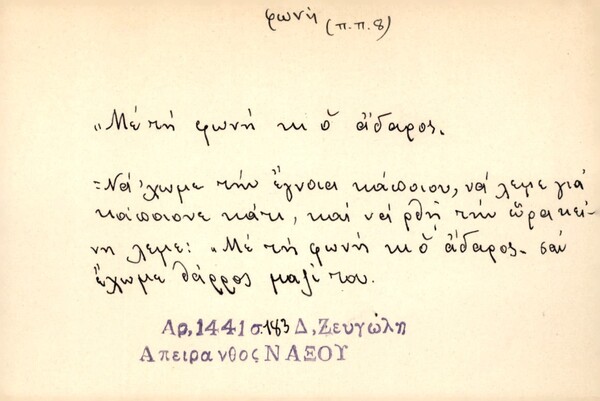 φωνή (π.π.8)
„Μέ τή φωνή κι ὁ ἄδαρος.
=Νά 'χωμε τήν ἔγνοια κάποιου, νά λεμε γιά
κάποιονε κάτι, καί νά ρθῃ τήν ὥρα κεί-
νη λεμε: „Μέ τή φωνή κι ὁ ἄδαρος. σάν
ἔχωμε θάρρος μαζί του.
Αρ, 1441 σ. 183 Δ, Ζευγώλη
Απειρανθος ΝΑΞΟΥ